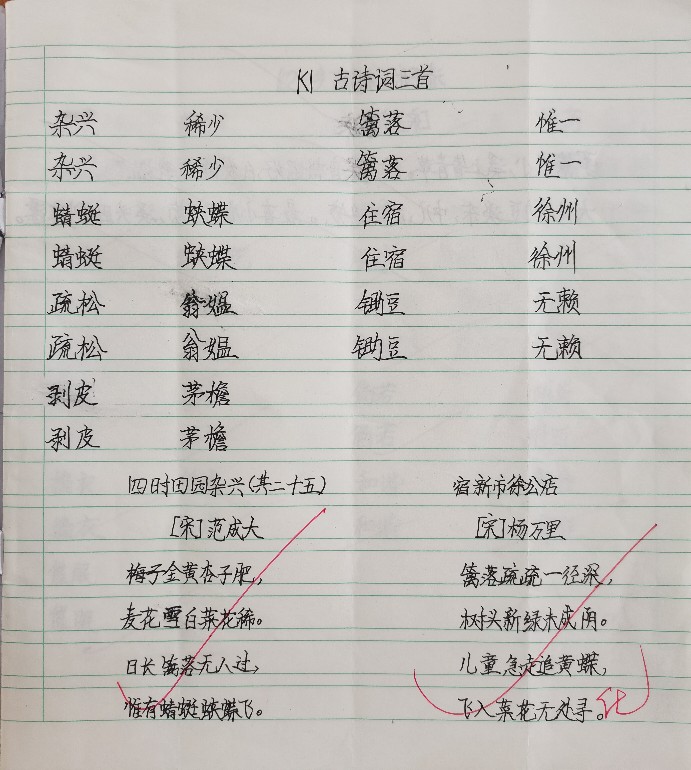 K1 古诗词三首
杂兴 稀少 篱落 惟一
杂兴 稀少 篱落 惟一
蜻蜓 蛱蝶 住宿 徐州
蜻蜓 蛱蝶 住宿 徐州
疏松 翁媪 锄豆 无赖
疏松 翁媪 锄豆 无赖
剥皮 茅檐
剥皮 茅檐
四时田园杂兴(其二十五)
[宋]范成大
梅子金黄杏子肥,
麦花雪白菜花稀。
日长篱落无人过,
惟有蜻蜓蛱蝶飞。
宿新市徐公店
[宋]杨万里
篱落疏疏一径深,
树头新绿未成阴。
儿童急走追黄蝶,
飞入菜花无处寻。